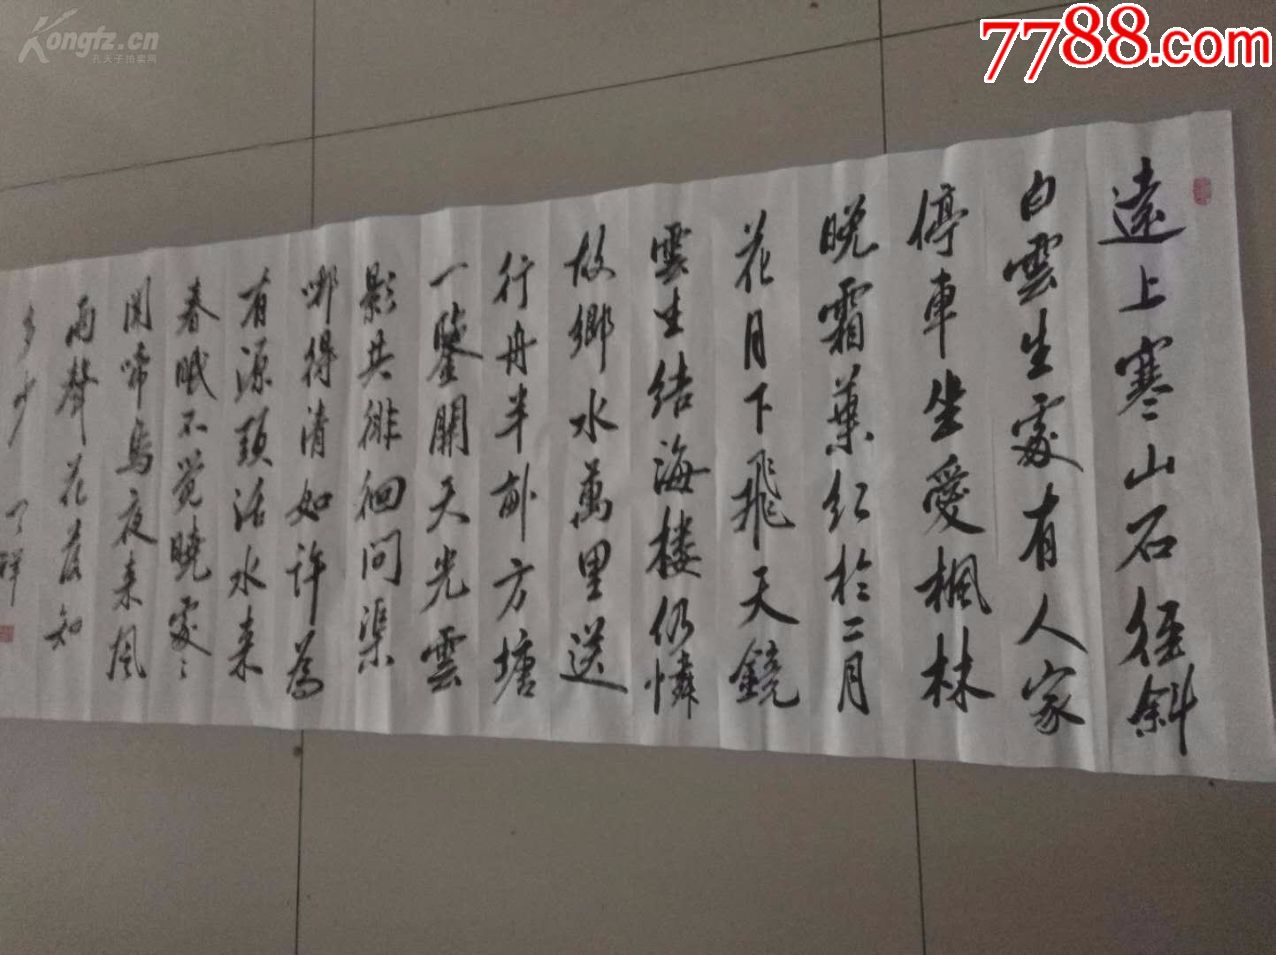 Kongfz.cn
孔夫子拍卖网
7788.com
遠上寒山石徑斜
白雲生處有人家
停車坐愛楓林
晚霜葉红於二月
花月下飛天鏡
雲生结海楼仍憐
故鄉水萬里送
行舟半畝方塘
一鑒開天光雲
影共徘徊問渠
哪得清如許為
有源頭活水来
春眠不觉曉處〻
闻啼鳥夜来風
雨聲花落知
多少